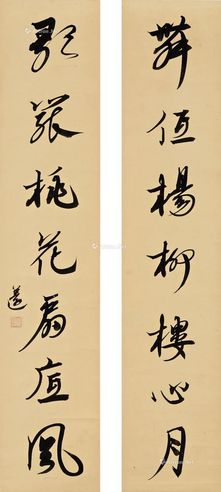 舞低楊柳樓心月
歌罷桃花扇底風